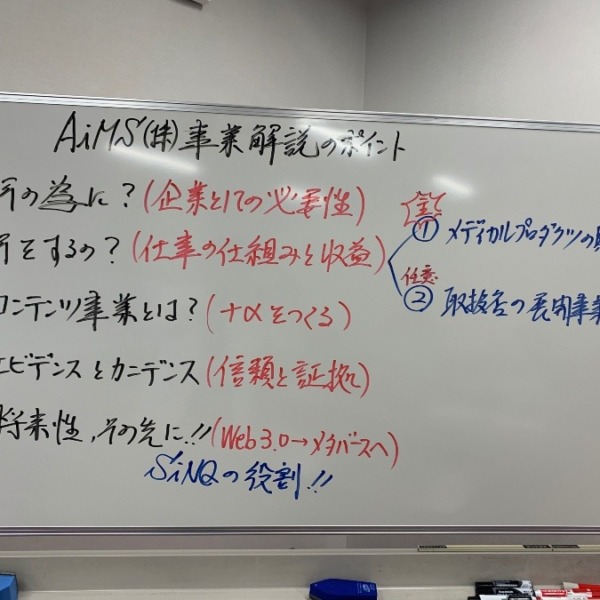 AiMS(株)事業解説のポイント
の為に?(企業としての必要性)
をするの?(仕事の仕組みと収益)
① メディカルプロダクツの
任意
② 取扱者の展開事業
コンテンツ事業とは?(+αをつくる)
エビデンスとカニデンス(信頼と証拠)
将来性、その先に!!(Web3.0→メタバースへ)
SiNQの役割!!